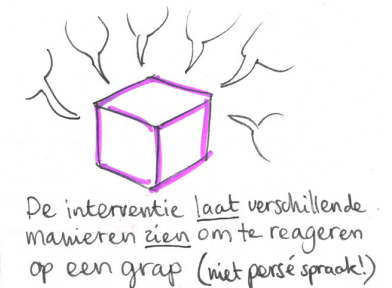 De interventie laat verschillende
manieren zien om te reageren
op een grap (niet persé spraak!)